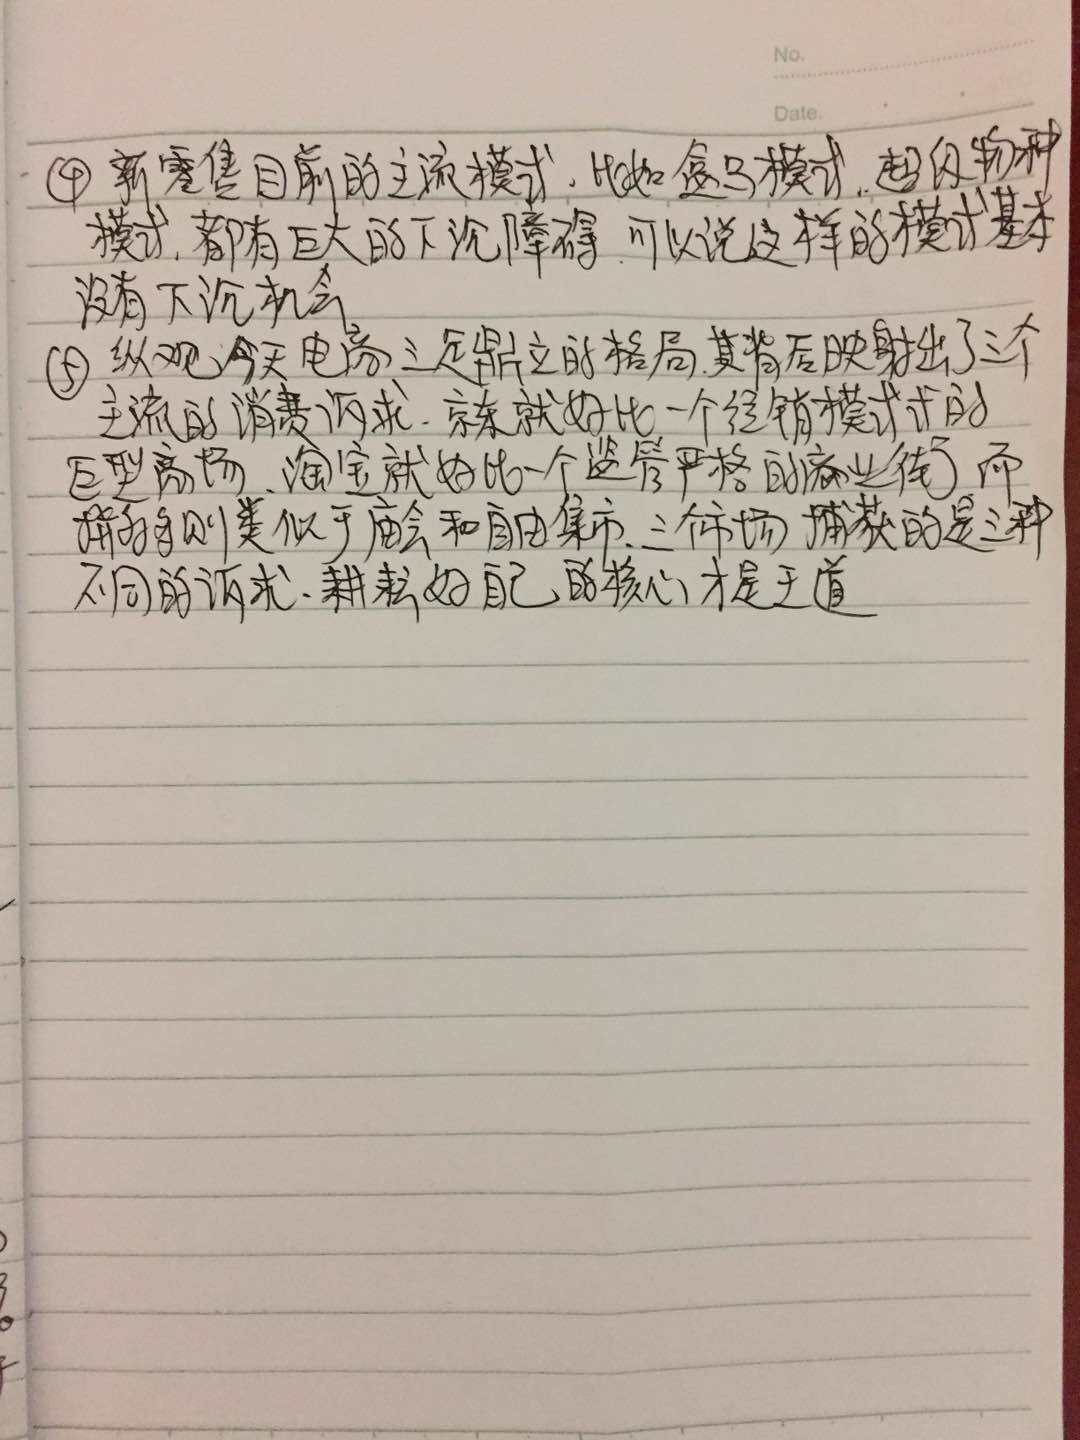 No.
Date.
④ 新零售目前的主流模式、比如盒马模式、超级物种
模式、都有巨大的下沉障碍、可以说这样的模式基本
没有下沉机会
⑤ 纵观今天电商三足鼎立的格局、其背后映射出了三个
主流的消费诉求、京东就好比一个经销模式式的
巨型商场、淘宝就好比一个监管严格的商业街了 而
拼多多则类似于庙会和自由集市、三个市场 捕获的是三种
不同的诉求、耕耘好自己的核心才是王道